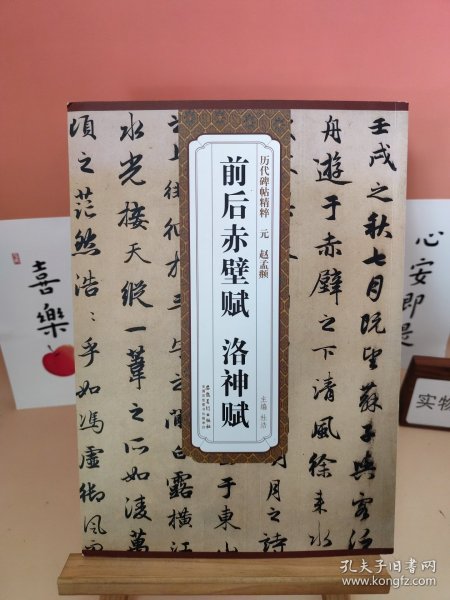 壬戌之秋七月既望蘇子與客泛
舟遊于赤壁之下清風徐來水
明月之詩
于東山
之間白露橫江
水光接天縱一葦之所如凌萬
頃之茫然浩〻乎如馮虛御風而
历代碑帖精粹 元 赵孟頫
前后赤壁赋 洛神赋
主编 杜浩
安徽美术出版社
心安即是
喜樂
实物
孔夫子旧书网
www.kongfz.com